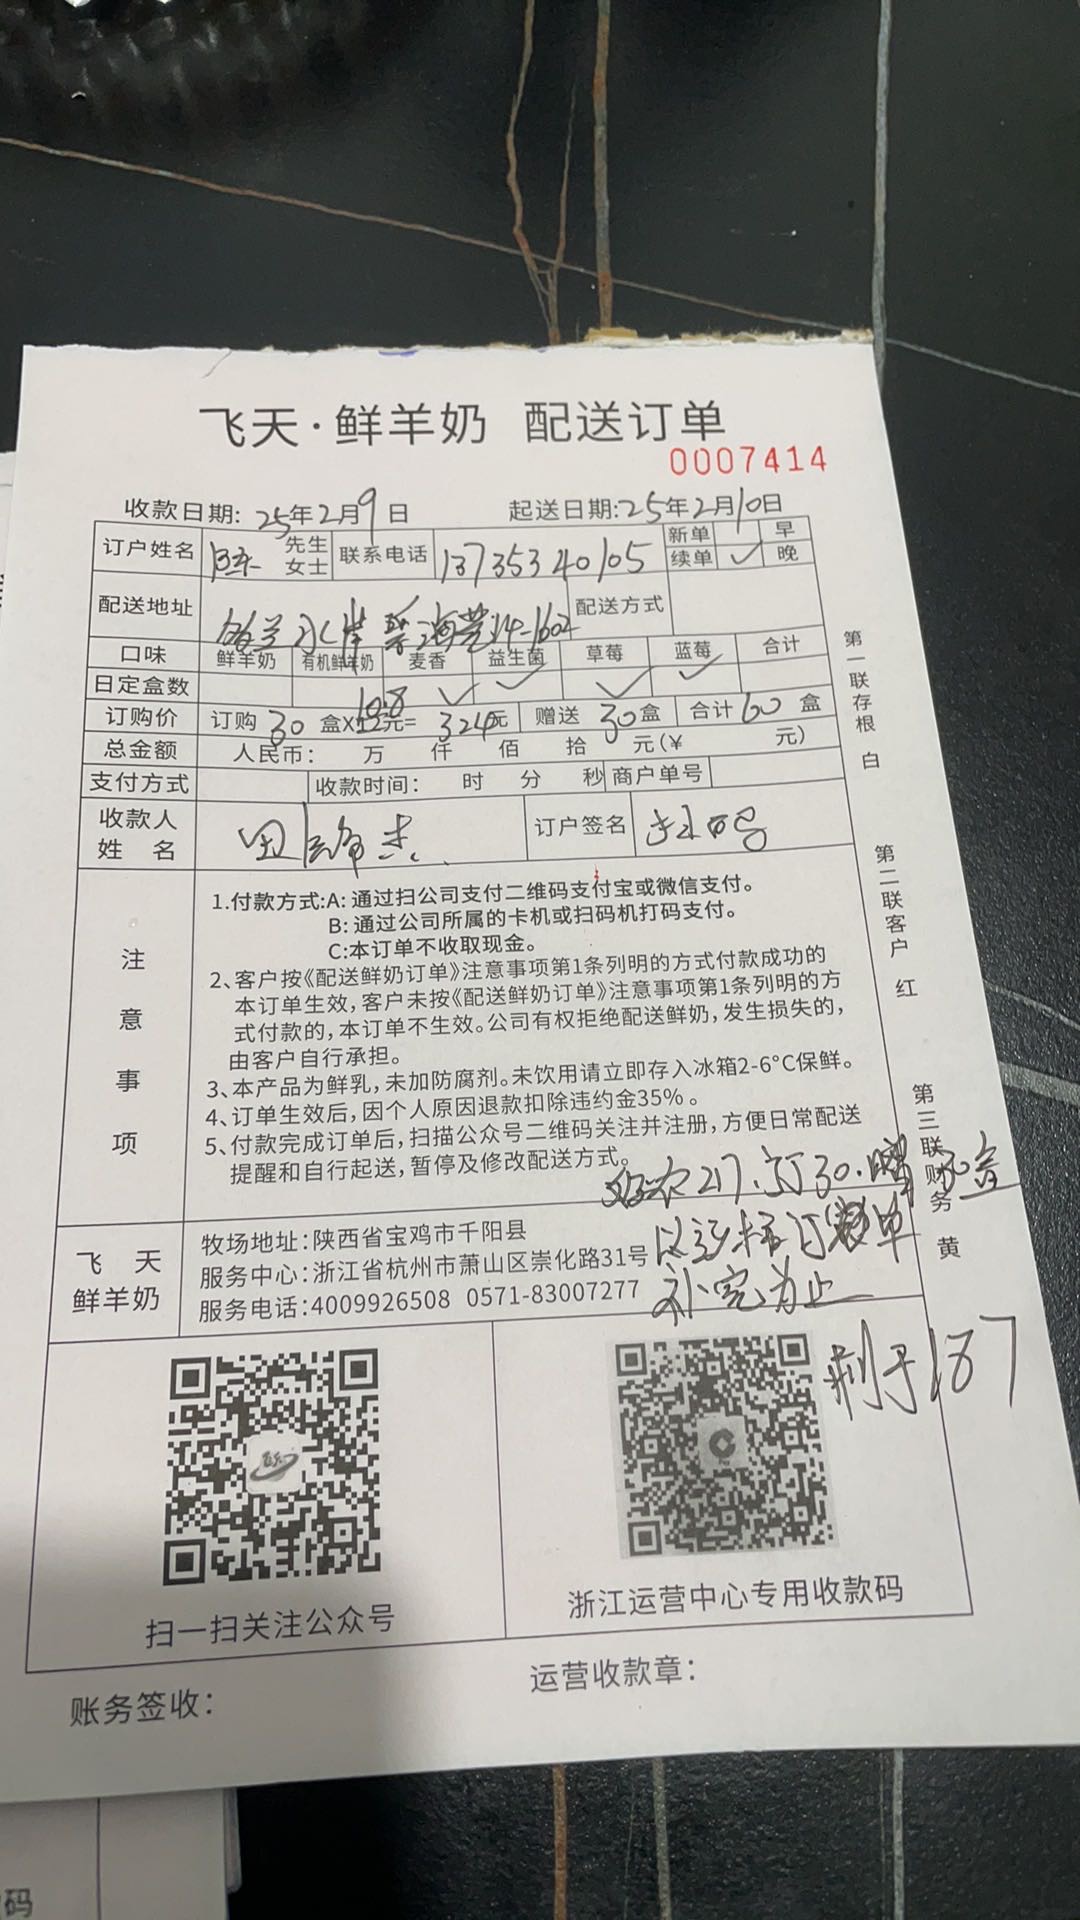 飞天·鲜羊奶 配送订单
0007414
收款日期: 25年2月9日 起送日期:25年2月10日
订户姓名 先生 女士 联系电话 13735340105 新单 续单 ✓ 早 晚
配送地址 水岸碧海芸14-1602 配送方式
口味 鲜羊奶 有机鲜羊奶 麦香 益生菌 草莓 蓝莓 合计
日定盒数 ✓ ✓ ✓ ✓
10.8
订购价 订购 30 盒X12元= 324元 赠送 30盒 合计 60 盒
总金额 人民币: 万 仟 佰 拾 元(¥ 元)
支付方式 收款时间: 时 分 秒 商户单号
收款人姓名 田 杰 订户签名
注意事项
1.付款方式:A: 通过扫公司支付二维码支付宝或微信支付。
B: 通过公司所属的卡机或扫码机打码支付。
C:本订单不收取现金。
2、客户按《配送鲜奶订单》注意事项第1条列明的方式付款成功的
本订单生效,客户未按《配送鲜奶订单》注意事项第1条列明的方
式付款的,本订单不生效。公司有权拒绝配送鲜奶,发生损失的,
由客户自行承担。
3、本产品为鲜乳,未加防腐剂。未饮用请立即存入冰箱2-6°C保鲜。
4、订单生效后,因个人原因退款扣除违约金35%。
5、付款完成订单后,扫描公众号二维码关注并注册,方便日常配送
提醒和自行起送,暂停及修改配送方式。
217.订30.赠30盒
订单
补完为止
剩于187
飞天鲜羊奶
牧场地址:陕西省宝鸡市千阳县
服务中心:浙江省杭州市萧山区崇化路31号
服务电话:4009926508 0571-83007277
扫一扫关注公众号
浙江运营中心专用收款码
账务签收:
运营收款章:
第一联存根 白
第二联客户 红
第三联财务 黄
码